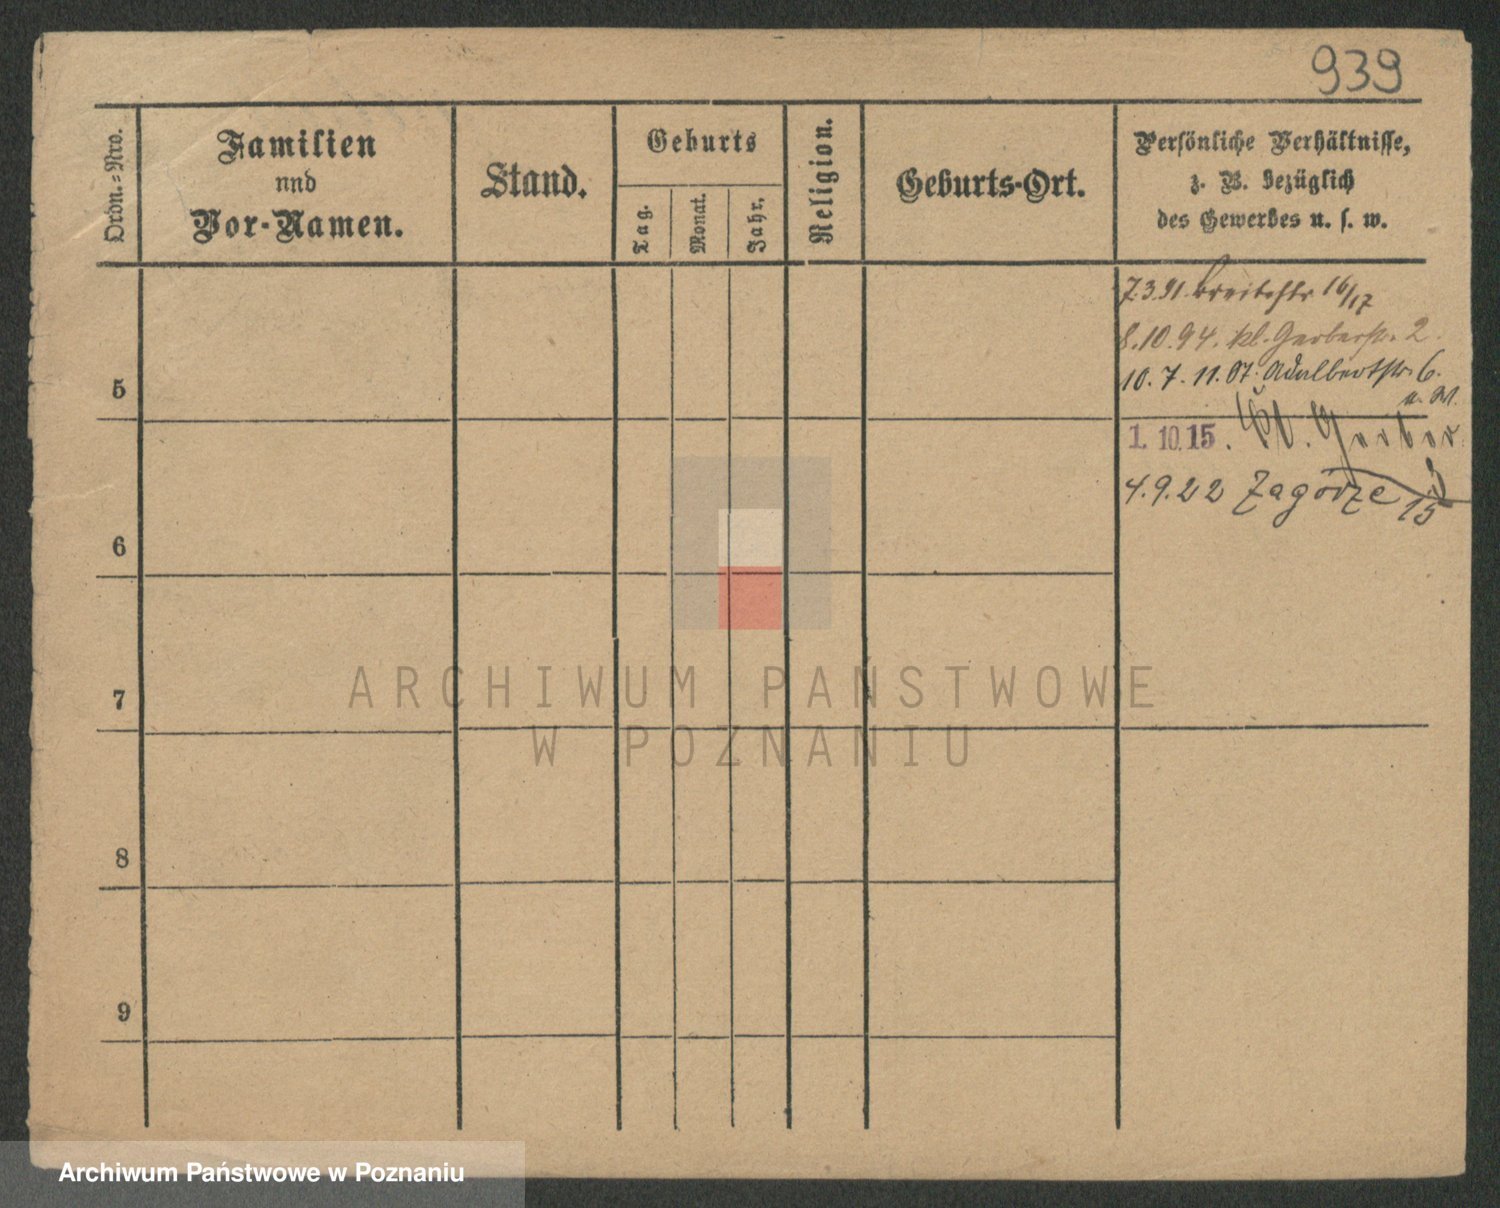 939
Ordn.-Nro.
Familien
nnd
Vor-Namen.
Stand.
Geburts
Tag.
Monat.
Jahr.
Religion.
Geburts-Ort.
Persönliche Verhältnisse,
z. B. bezüglich
des Gewerbes u. s. w.
7.3.91. Breitestr 16/17
8.10.94. kl. Gerberstr. 2.
10. 7. 11. St. Adalbertstr. 6.
5
1. 10. 15. Kl. Gerber
4.9.22 Zagórze 15
6
7
8
9
ARCHIWUM PAŃSTWOWE
W POZNANIU
Archiwum Państwowe w Poznaniu